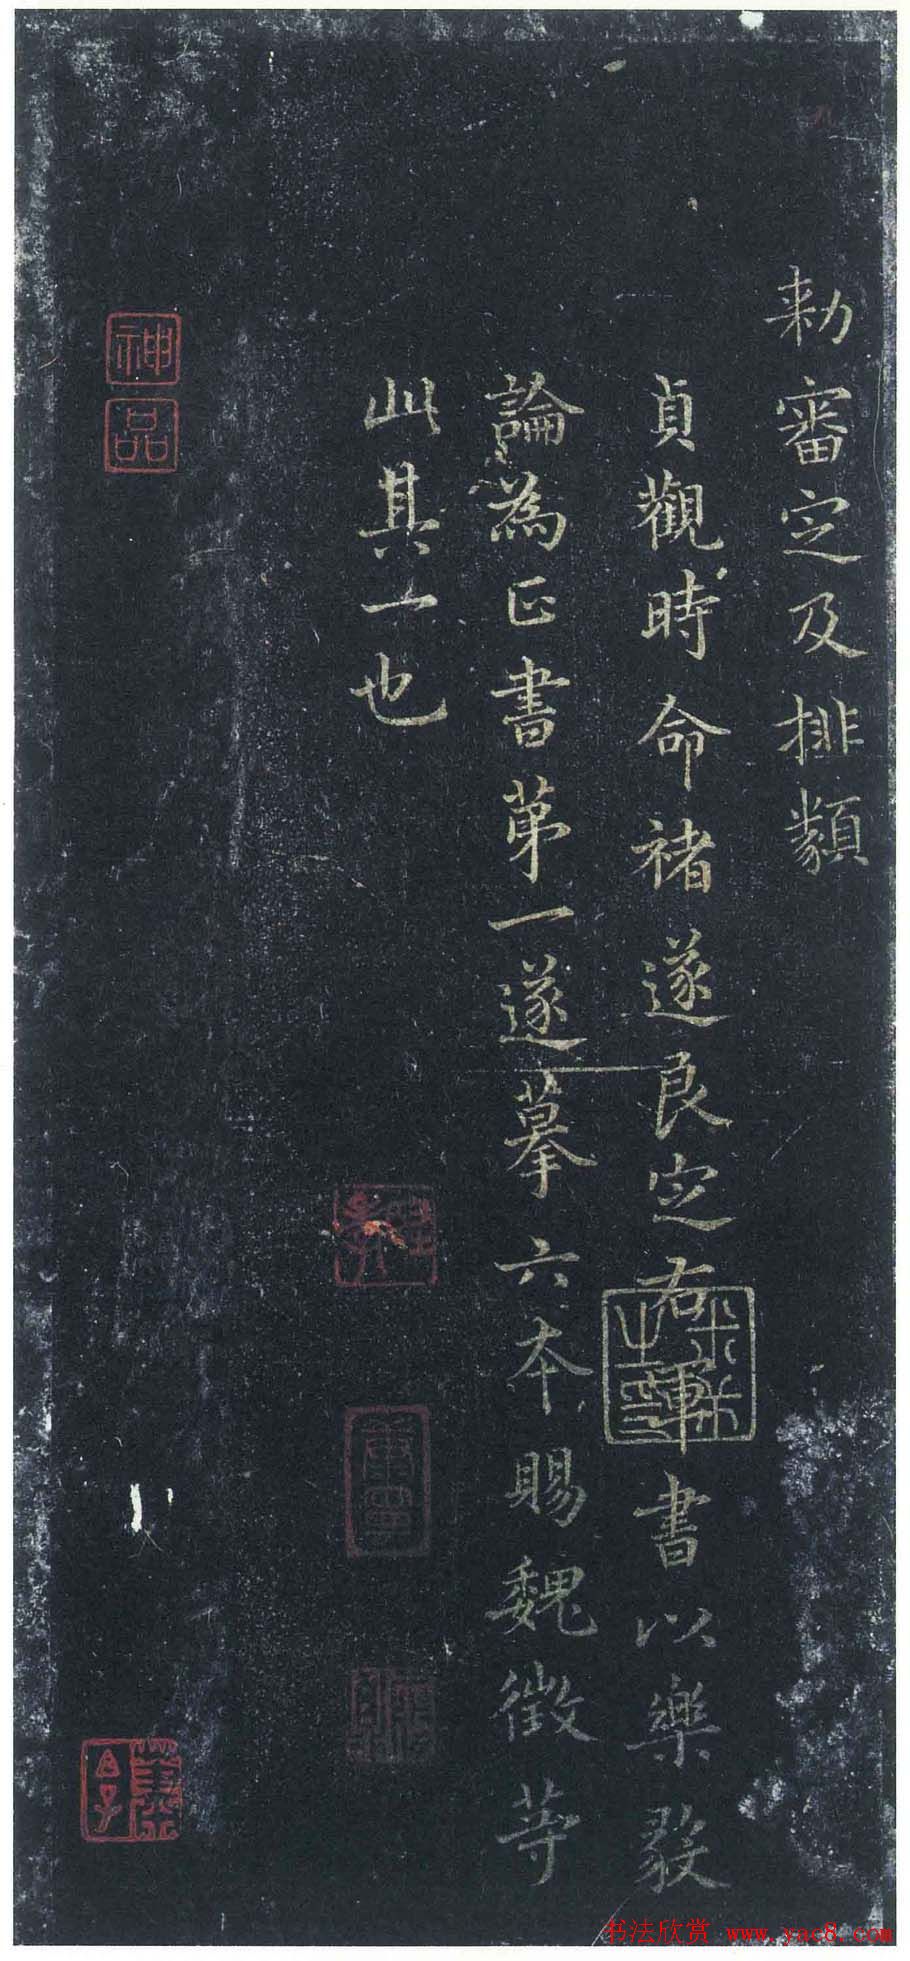 勑審定及排類
貞觀時命褚遂良定右軍書以樂毅
論為正書第一遂摹六本賜魏徵等
此其一也
神
品
书法欣赏 www.yac8.com